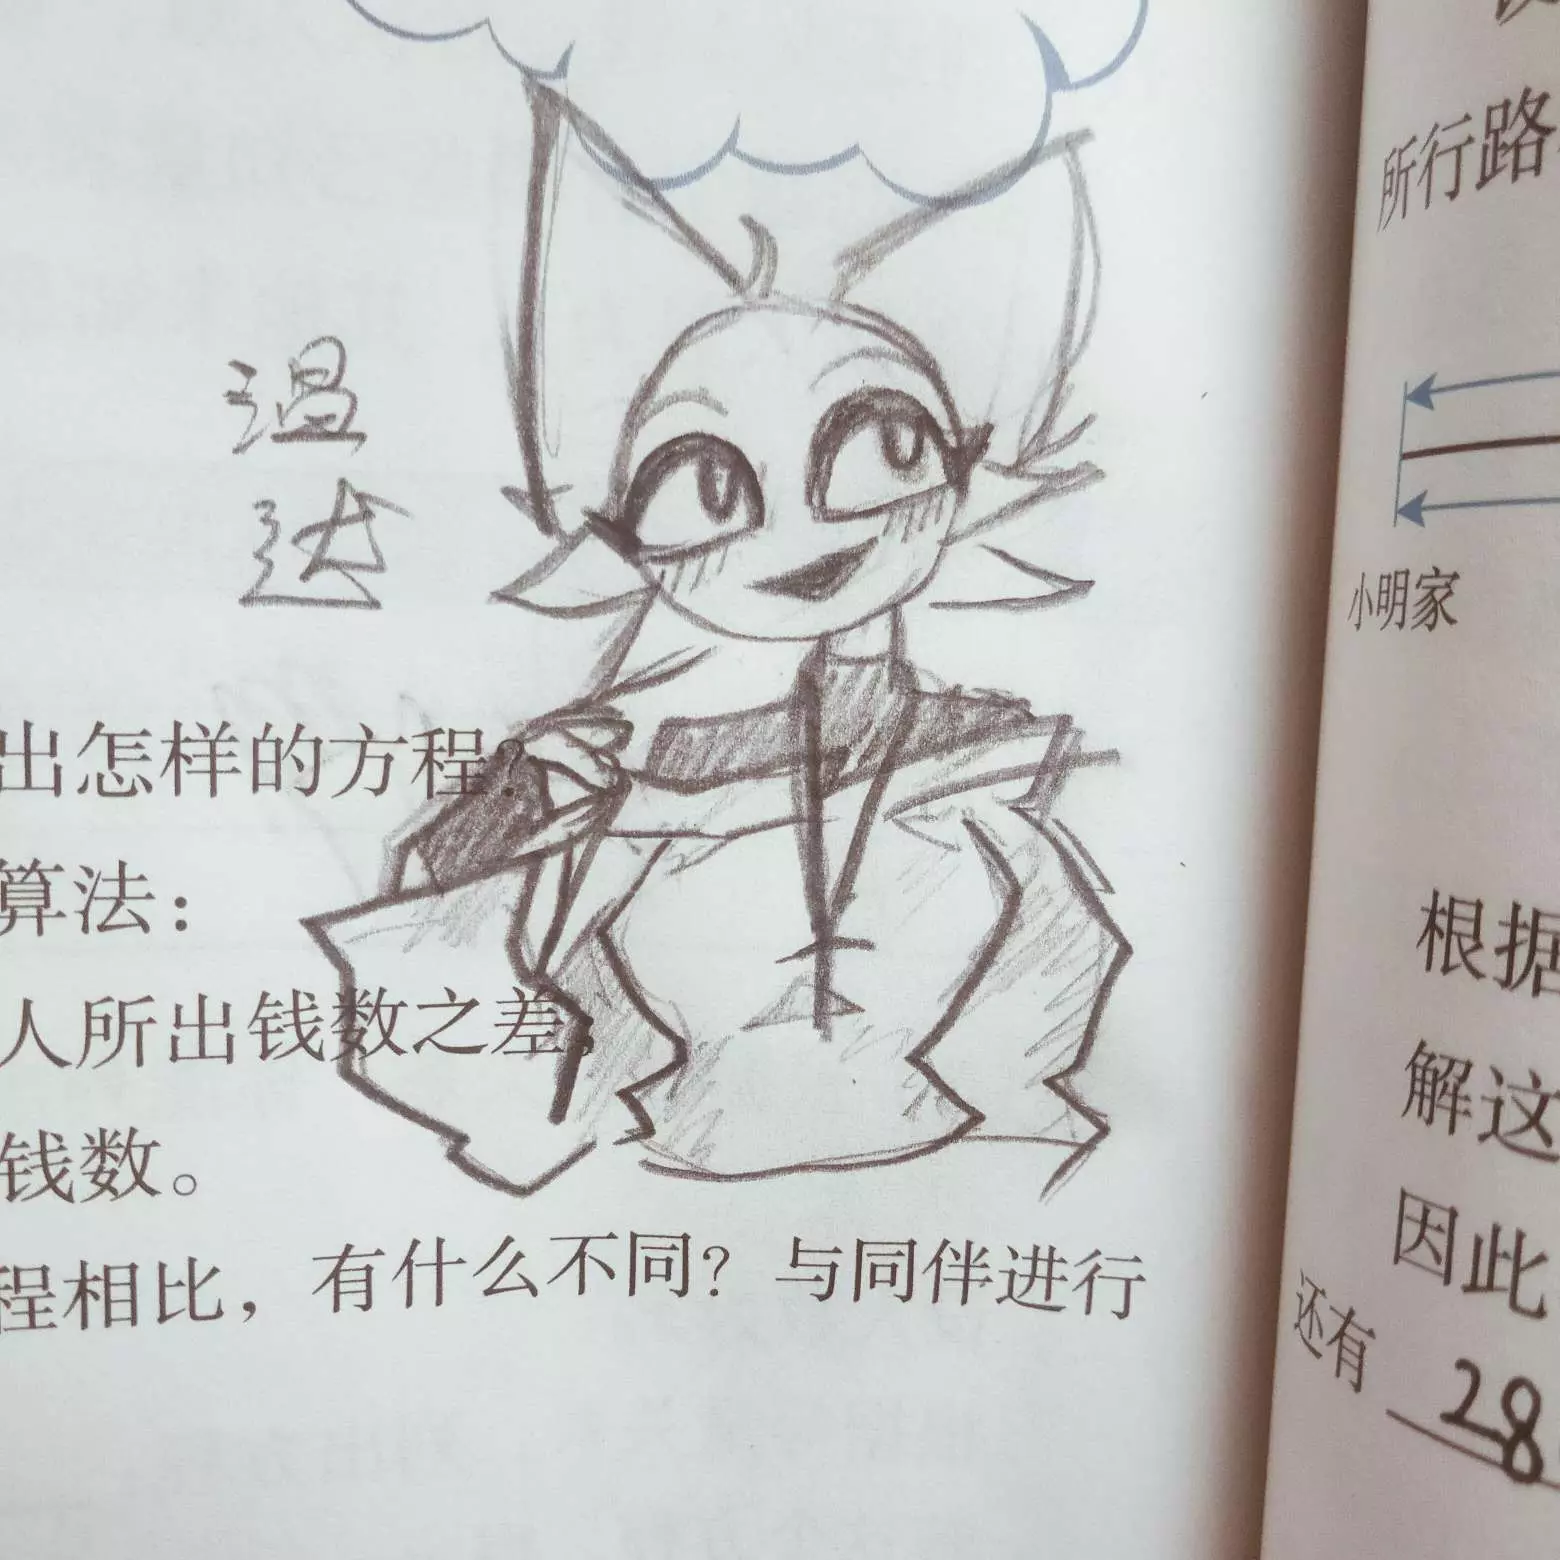 温
达
出怎样的方程?
算法：
人所出钱数之差；
钱数。
程相比，有什么不同？与同伴进行
所行路
小明家
根据
解这
因此
还有 28